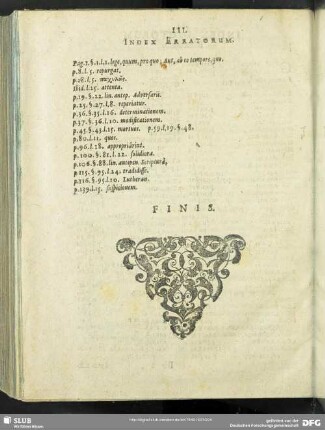 III.
INDEX ERRATORUM.
Pag.2.§.1.l.1. lege, quum, pro quo: Aut, ab eo tempore, quo.
p.8.l.5. repurgat.
p.18.l.5.
Ibid.l.25. attenta.
p.19.§.22. lin. antep. Adversarii.
p.25.§.27.l.8. reperiatur.
p.36.§.35.l.16. determinationem.
p.37.§.36.l.10. modificationem.
p.45.§.43.l.15. mutuas. p.59.l.19.§.48.
p.80.l.11. quos.
p.96.l.28. appropriârint.
p.100.§.81.l.22. solidiora.
p.108.§.88. lin. antepen. Scripturâ,
p.115.§.95.l.24. tradidisse.
p.116.§.95.l.20. Lutheran.
p.139.l.15. suspicionem.
FINIS.
SLUB
Wir führen Wissen.
gefördert von der
Deutschen Forschungsgemeinschaft
DFG